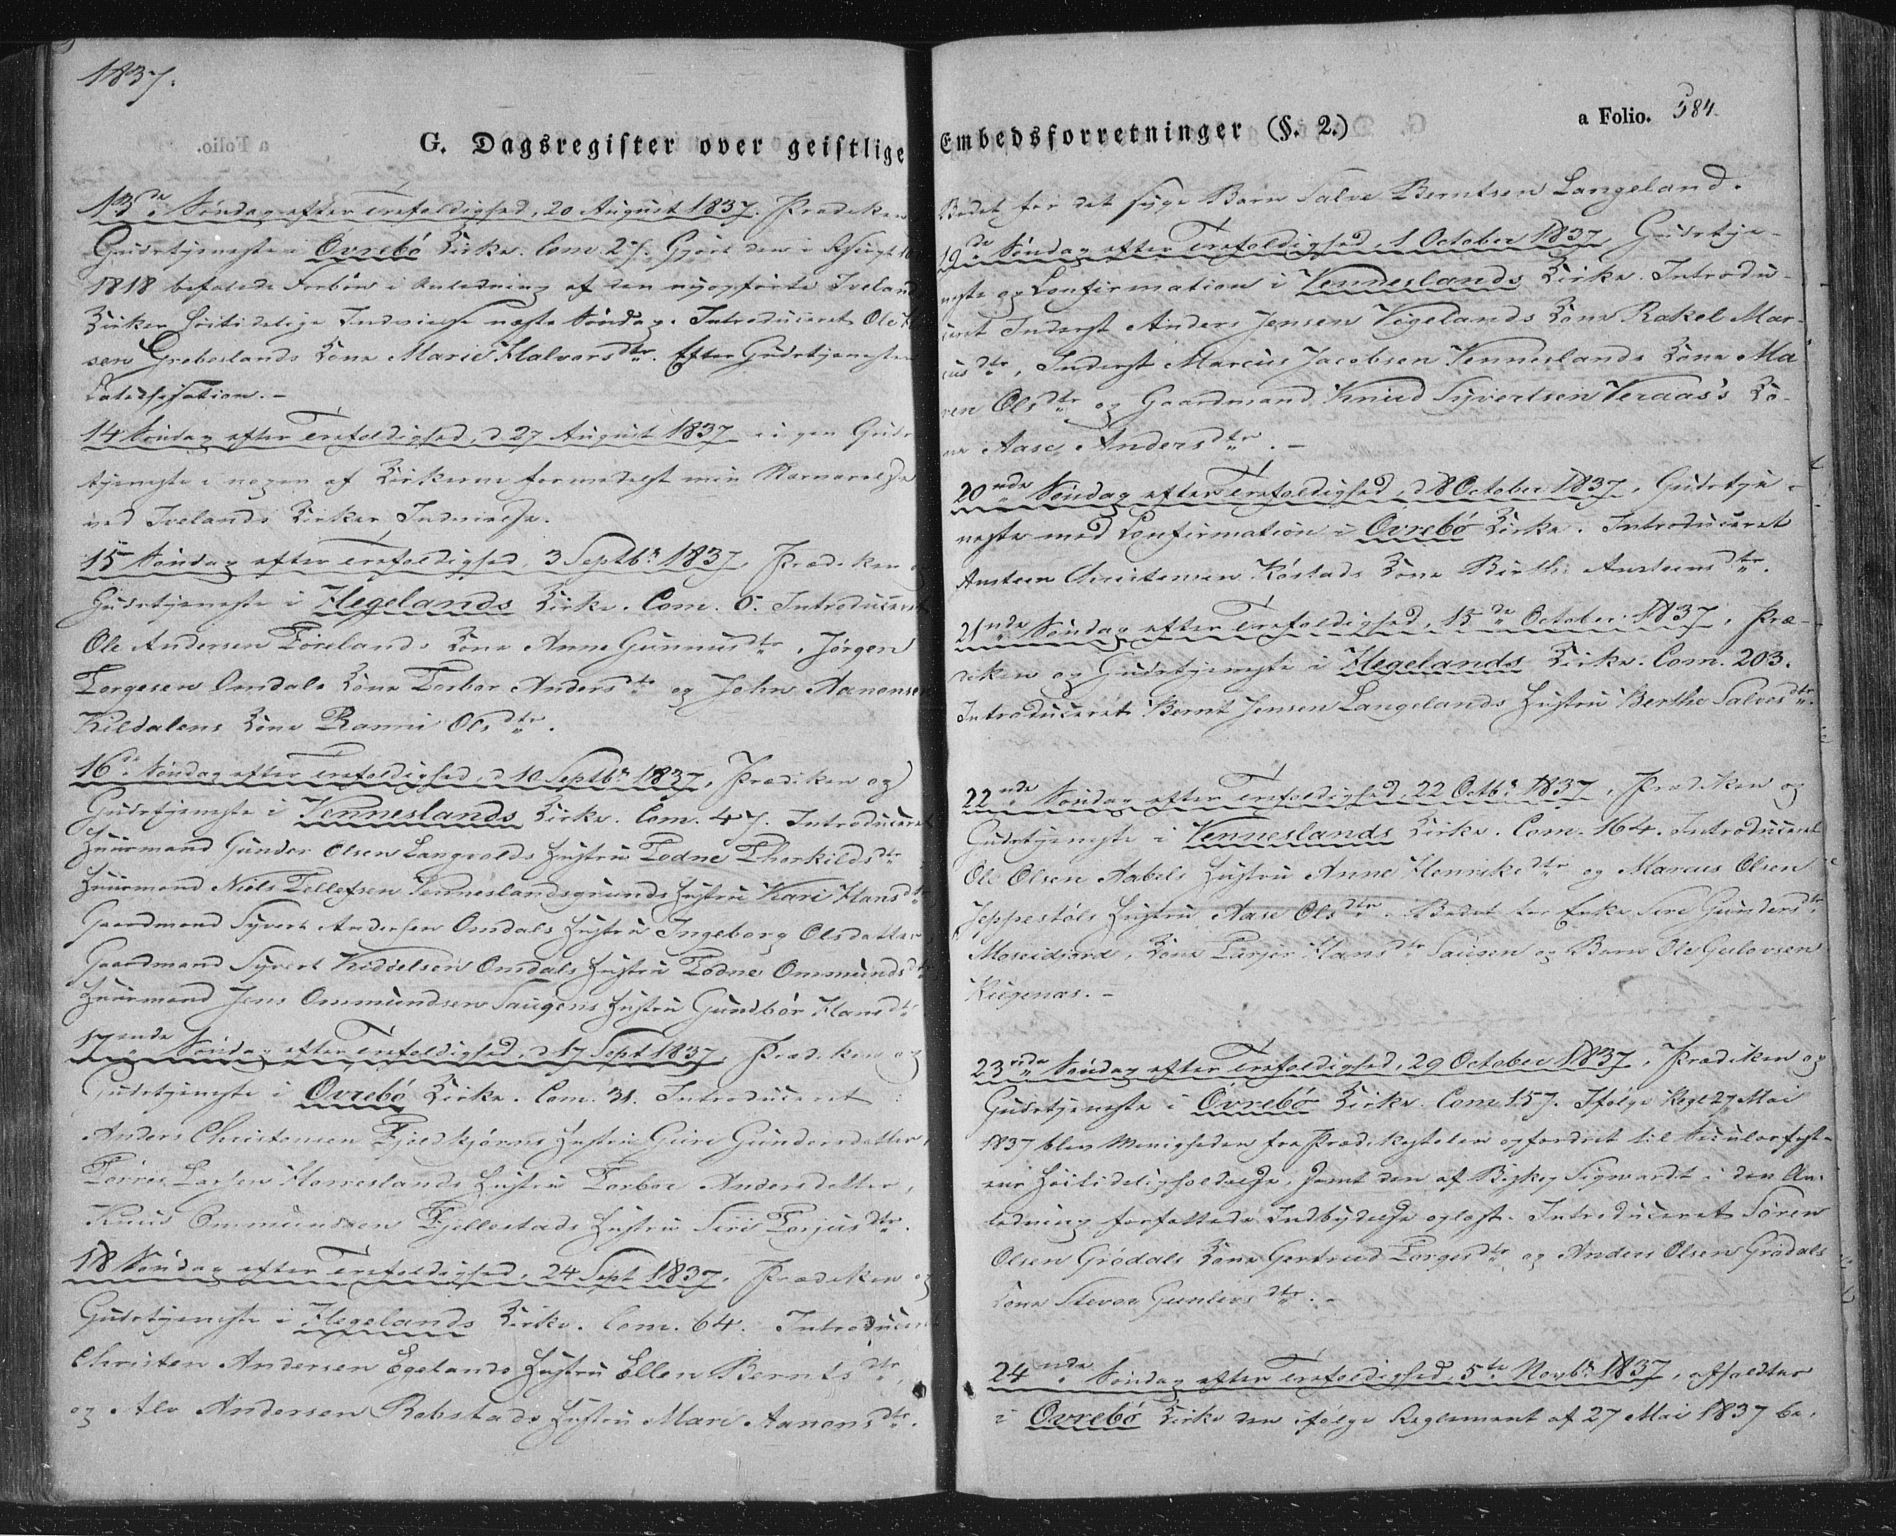 1837.
G. Dagsregister over geistlige
13de Søndag efter Trefoldighed, 20 August 1837. Prædiken
Gudstjeneste i Øvrebö Kirke. Com. 27. Gjort den i Rescript
1818 befalede Forbön i Anledning af den nyopførte Iveland
Kirkes høitidelige Indvielse næste Søndag. Introduceret Ole
sen Greboslands Kone Marie Halvorsdtr. Efter Gudstjenesten
Catechisation. -
14 Søndag efter Trefoldighed, d 27 August 1837 ingen Guds
tjeneste i nogen af Kirkerne formedelst min Nærværelse
ved Ivelands Kirkes Indvielse.
15 Søndag efter Trefoldighed, 3 Septbr 1837, Prædiken
Gudstjeneste i Hegelands Kirke. Com. 0. Introduceret
Ole Andersen Föreland Kone Anne Gunnusdtr, Jörgen
Torgesen Omdals Kone Torbor Andersdtr og John Aanonsen
Kildalens Kone Ranni Olsdtr.
16de Søndag efter Trefoldighed, d 10 Septbr 1837, Prædiken og
Gudstjeneste i Venneslands Kirke. Com. 47. Introduceret
Huusmand Gunder Olsen Langvolds Hustru Todne Thorkildsdtr
Huusmand Niels Tellefsen Venneslandsgrunds Hustru Kari Hansdtr
Gaardmand Syvert Andersen Omdals Hustru Ingeborg Olsdatter
Gaardmand Syvert Kiddelsen Omdals Hustru Todne Ommundsdtr
Huusmand Jens Ommundsen Saugens Hustru Gundbör Hansdtr
17ende Søndag efter Trefoldighed, d 17 Sept 1837, Prædiken og
Gudstjeneste i Øvrebö Kirke. Com. 31. Introduceret
Anders Christensen Fjeldkjörns Hustru Guri Gundersdatter,
Törres Larsen Horreslands Hustru Torbor Andersdatter,
Knud Ommundsen Fjellestads Hustru Siri Torjusdtr.
18 Søndag efter Trefoldighed, 24 Sept 1837, Prædiken og
Gudstjeneste i Hegelands Kirke. Com. 64. Introduceret
Christen Andersen Egelands Hustru Ellen Berntsdtr,
og Alv Andersen Robstads Hustru Mari Aanonsdtr.
Embedsforretninger (§. 2.)
a Folio. 584.
Bedet for det syge Barn Salve Berntsen Langeland.
19de Søndag efter Trefoldighed, 1 October 1837, Gudstje-
neste og Confirmation i Venneslands Kirke. Introdu-
ceret Inderst Anders Jensen Vigelands Kone Rakel Mar-
cusdtr, Inderst Marcus Jacobsen Venneslands Kone Ma
ren Olsdtr og Gaardmand Knud Syvertsen Veraas's Ko-
ne Aase Andersdtr. -
20nde Søndag efter Trefoldighed, d 8 October 1837, Gudstje-
neste med Confirmation i Øvrebö Kirke. Introduceret
Ansteen Christensen Röstads Kone Birthe Ansteensdtr.
21nde Søndag efter Trefoldighed, 15de October 1837, Præ-
diken og Gudstjeneste i Hegelands Kirke. Com. 203.
Introduceret Bernt Jensen Langelands Hustru Berthe Salvesdtr.
22nde Søndag efter Trefoldighed, 22 Octbr 1837, Prædiken og
Gudstjeneste i Venneslands Kirke. Com. 164. Introduceret
Ole Olsen Aabels Hustru Anne Henriksdtr og Marcus Olsen
Jeppestöls Hustru Aase Olsdtr. Bedet for Enke Siri Gundersdtr
Moseidjord, Kone Tarjer Hansdtr Saugen og Barn Ole Gulovsen
Kugenæs. -
23nde Søndag efter Trefoldighed, 29 October 1837, Prædiken og
Gudstjeneste i Øvrebö Kirke. Com 157. Ifølge Regl 27 Mai
1837 blev Menigheden fra Prædikestolen opfordret til Secularfest-
ens Høitideligholdelse, samt den af Biskop Sigwardt i den An-
ledning forfattede Indbydelse oplæst. Introduceret Sören
Olsen Grödals Kone Gertrud Torgesdtr og Anders Olsen Grödals
Kone Stevoe Gunlevsdtr. -
24nde Søndag efter Trefoldighed, 5te Novbr 1837, afholdtes
i Øvrebö Kirke den ifølge Reglement af 27 Mai 1837 be-